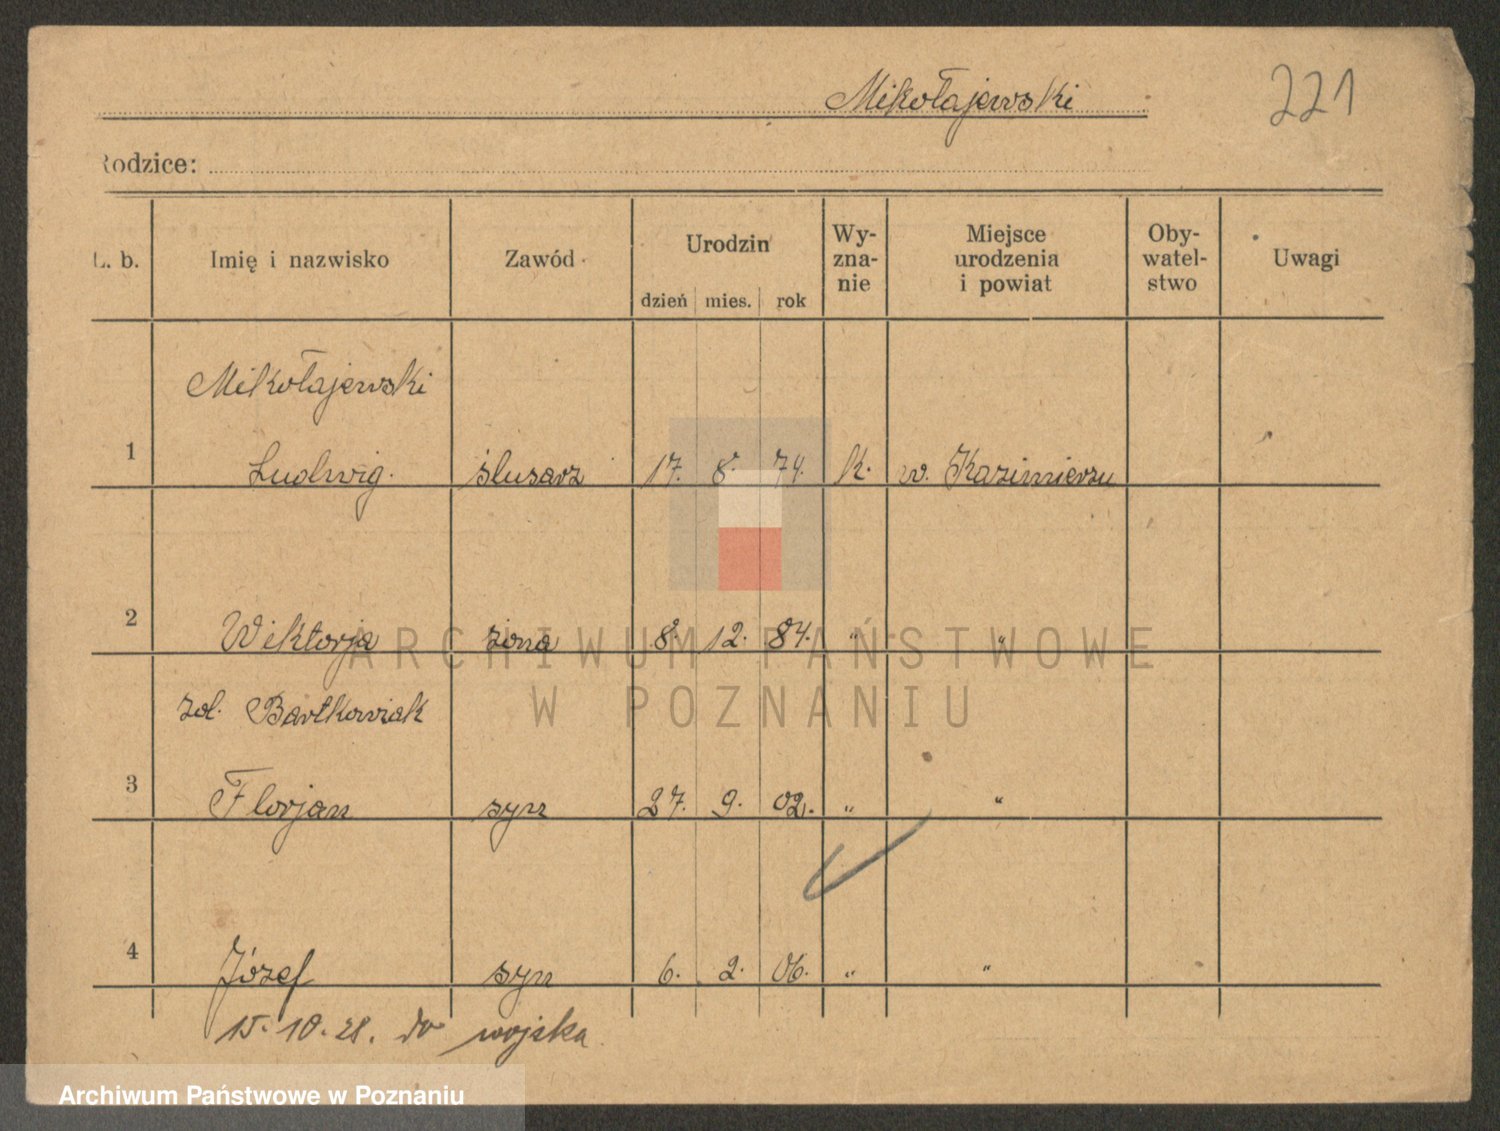 Mikołajewski
221
Rodzice:
L. b. Imię i nazwisko Zawód Urodzin dzień mies. rok Wy-zna-nie Miejsce urodzenia i powiat Oby-watel-stwo Uwagi
Mikołajewski
1 Ludwig. ślusarz 17. 8. 74. k. w. Kazimierzu
2 Wiktorja żona 8. 12. 84. " "
zol. Bartkowiak
3 Florjan syn 27. 9. 02. " "
4 Józef syn 6. 2. 06. " "
15.10.28. do wojska
ARCHIWUM PAŃSTWOWE
W POZNANIU
Archiwum Państwowe w Poznaniu